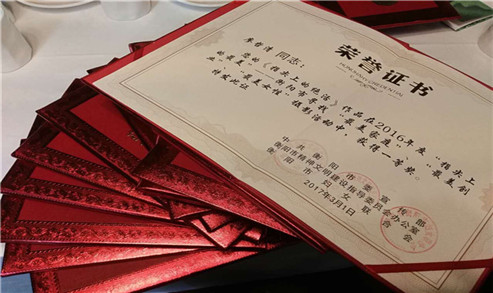 荣誉证书
同志:
您的《指尖上的绝活》作品在2016年度“指尖上
的最美”——衡阳市寻找“最美家庭”、“最美创
业”摄影活动中,获得一等奖,
特发此证
中共衡阳市委宣传部
衡阳市精神文明建设指导委员会办公室
衡阳市妇女联合会
2017年3月1日